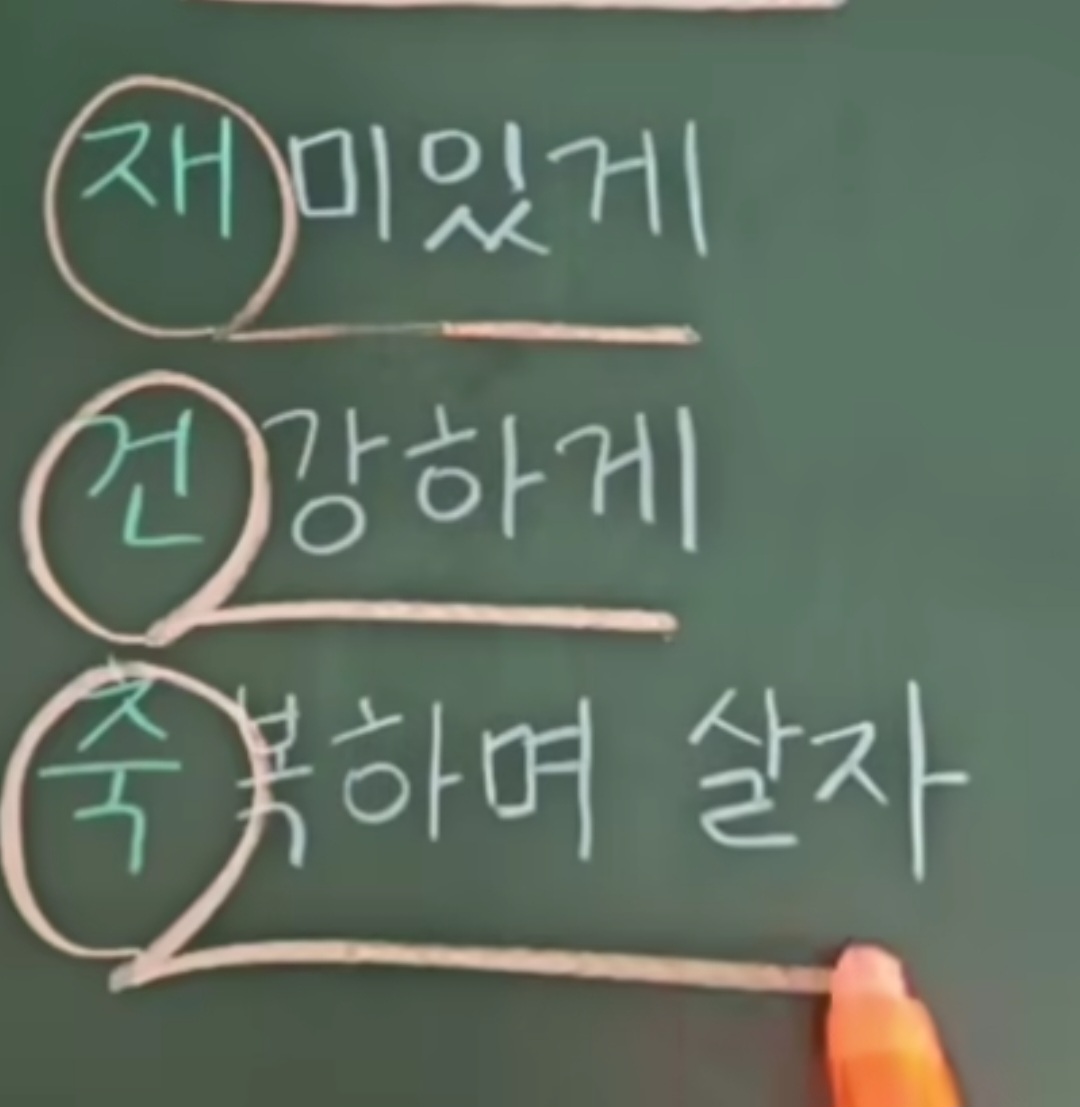 재미있게
건강하게
축복하며 살자